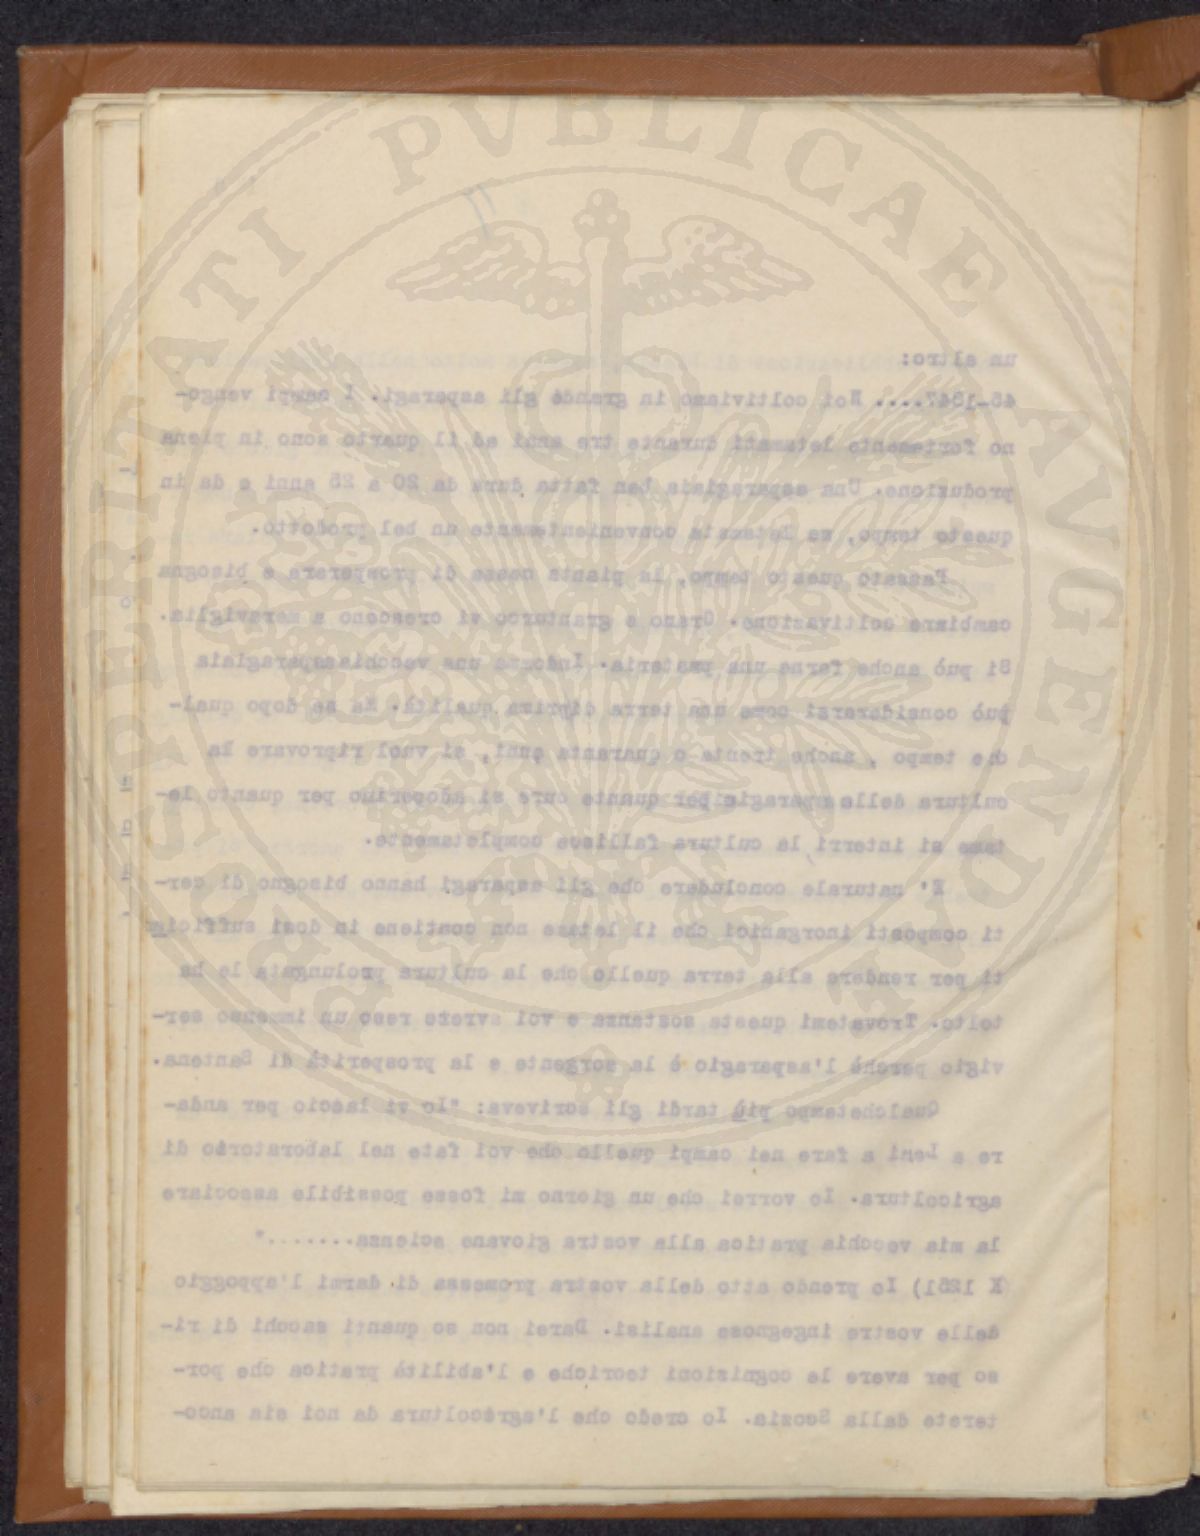 PROSPERITATI PVBLICAE AVGENDAE
un altro:
46-1847.... Noi coltiviamo in grande gli asparagi. I campi vengo-
no fortemente letamati durante tre anni ed il quarto sono in piena
produzione. Una asparagiaia ben fatta dura da 20 a 25 anni e da in
questo tempo, se letamata convenientemente un bel prodotto.
Passato questo tempo, la pianta cessa di prosperare e bisogna
cambiare coltivazione. Grano e granturco vi crescono a meraviglia.
Si può anche farne una prateria. Indomma una vecchiaasparagiaia
può considerarsi come una terra diprima qualità. Ma se dopo qual-
che tempo , anche trenta o quaranta anni, si vuol riprovare la
cultura delle sparagie per quante cure si adoperino per quanto le-
tame si interri la cultura fallisce completamente.
E' naturale concludere che gli asparagi hanno bisogno di cer-
ti composti inorganici che il letame non contiene in dosi sufficie
ti per rendere alla terra quello che la cultura prolungata le ha
tolto. Trovatemi questa sostanza e voi avrete reso un immenso ser-
vigio perchè l'asparagio è la sorgente e la prosperità di Santena.
Qualchetempo più tardi gli scriveva: "Io vi lascio per anda-
re a Leni a fare nei campi quello che voi fate nel laboratorio di
agricoltura. Io vorrei che un giorno mi fosse possibile associare
la mia vecchia pratica alla vostra giovane scienza......."
(K 1251) Io prendo atto della vostra promessa di darmi l'appoggio
delle vostre ingegnose analisi. Darei non so quanti sacchi di ri-
so per avere le cognizioni teoriche e l'abilità pratica che por-
terete dalla Scozia. Io credo che l'agricoltura da noi sia anco-